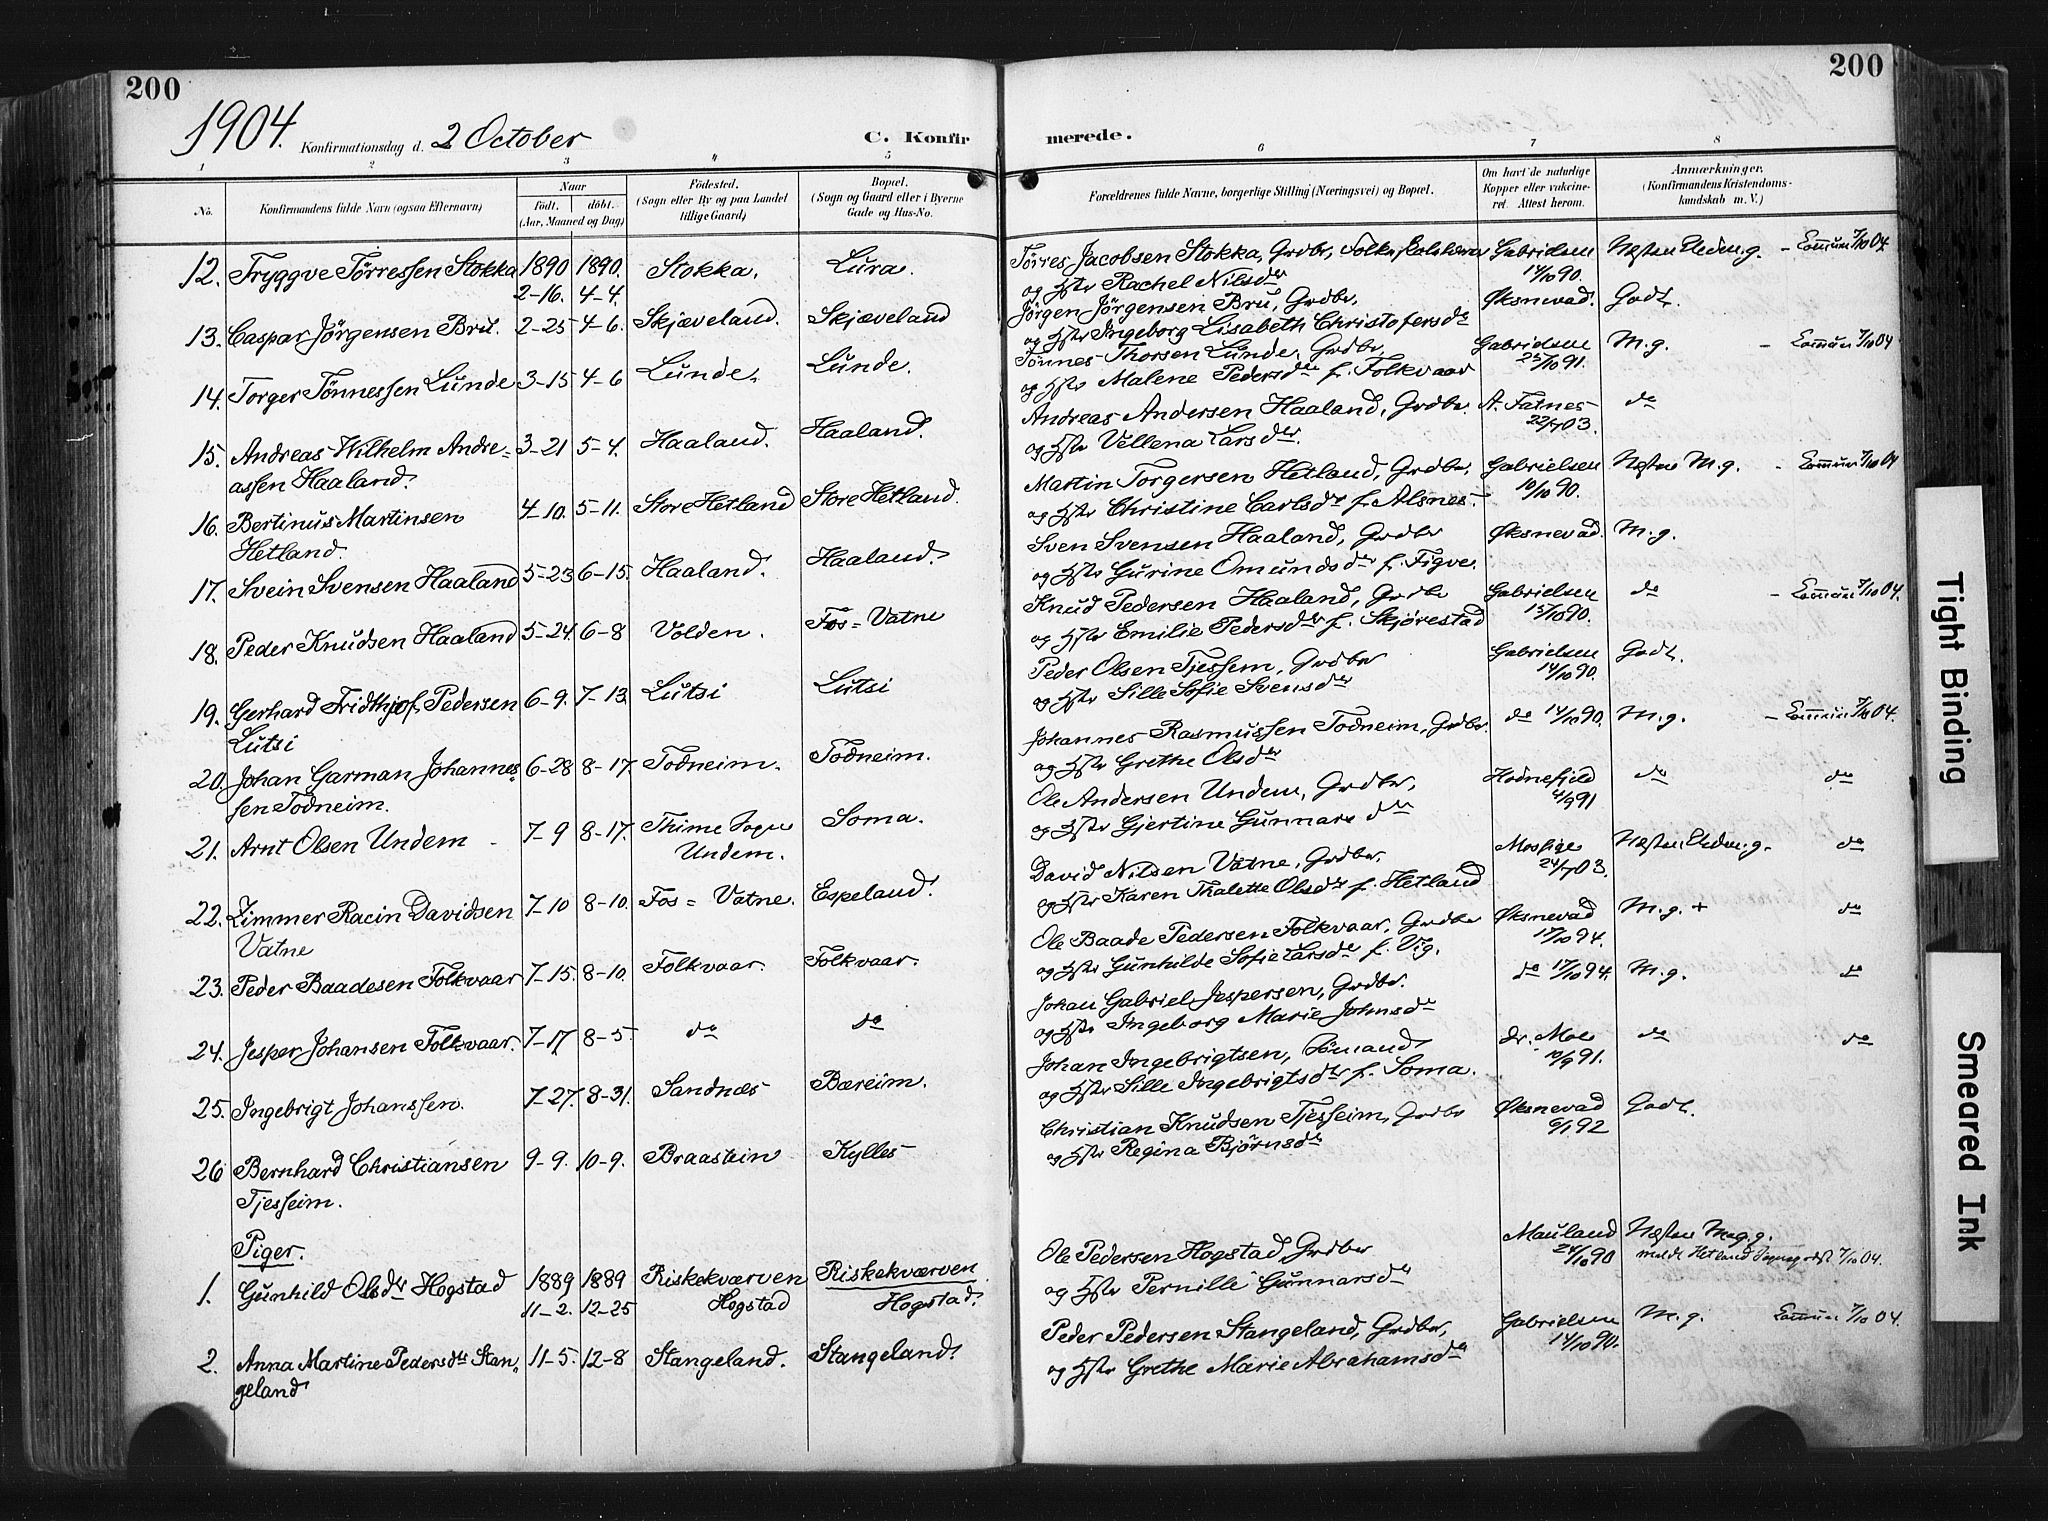 200
200
1904.
Konfirmationsdag d. 2 October
C. Konfir
merede.
1 2 3 4 5 6 7 8
No.
Konfirmandens fulde Navn (ogsaa Efternavn)
Naar
Födt. döbt.
(Aar, Maaned og Dag)
Födested.
(Sogn eller By og paa Landet
tillige Gaard)
Bopæl.
(Sogn og Gaard eller i Byerne
Gade og Hus-No.
Forældrenes fulde Navne, borgerlige Stilling (Næringsvei) og Bopæl.
Om havt de naturlige
Kopper eller vakcine-
ret. Attest herom.
Anmærkninger.
(Konfirmandens Kristendoms-
kundskab m. V.)
12. Tryggve Tørressen Stokka 1890 2-16. 1890. 4-4. Stokka. Lura.
Tørres Jacobsen Stokka, Grdbr,
og Hstr Rachel Nilsdtr
Gabrielsen 14/10 90.
Næsten M.g. - 7/10 04
13. Caspar Jörgensen Bru. 2-25 4-6. Skjæveland. Skjæveland
Jörgen Jörgensen Bru, Grdbr,
og Hstr Ingeborg Lisabeth Christofersdtr
Øksnevad. Godt.
14. Torger Tönnessen Lunde 3-15 4-6 Lunde. Lunde.
Tönnes Thorsen Lunde, Grdbr,
og Hstr Malene Pedersdtr f. Folkvaar
Gabrielsen 25/10 91. M.g. - 7/10 04
15. Andreas Wilhelm Andre=
assen Haaland. 3-21 5-4. Haaland. Haaland.
Andreas Andersen Haaland, Grdbr.
og Hstr Vellena Larsdtr.
A. Tatnes 22/7 03. do
16. Bertinus Martinsen
Hetland. 4-10. 5-11. Store Hetland Store Hetland.
Martin Torgersen Hetland, Grdbr,
og Hstr Christine Carlsdtr f. Alsnes.
Gabrielsen 10/10 90. Næsten M.g. - 7/10 04
17. Svein Svensen Haaland 5-23 6-15. Haaland. Haaland.
Sven Svensen Haaland, Grdbr
og Hstr Gurine Omundsdtr f. Figve.
Øksnevad. M.g.
18. Peder Knudsen Haaland 5-24. 6-8 Volden. Fos=Vatne
Knud Pedersen Haaland, Grdbr
og Hstr Emilie Pedersdtr f. Skjørestad
Gabrielsen 15/10 90. do - 7/10 04.
19. Gerhard Fridthjof Pedersen
Lutsi 6-9. 7-13. Lutsi Lutsi
Peder Olsen Tjessem, Grdbr
og Hstr Sille Sofie Svensdtr
Gabrielsen 14/10 90. Godt.
20. Johan Garman Johannes=
sen Todneim. 6-28 8-17 Todneim. Todneim.
Johannes Rasmussen Todneim, Grdbr.
og Hstr Grethe Olsdtr
do 14/10 90. M.g. - 7/10 04.
21. Arnt Olsen Undem 7-9 8-17. Thime Sogn
Undem. Soma.
Ole Andersen Undem, Grdbr,
og Hstr Gjertine Gunnarsdtr
Hodnefjeld 4/9 91 do do
22. Zimmer Racin Davidsen
Vatne 7-10 8-10. Fos=Vatne. Espeland.
David Nilsen Vatne, Grdbr.
og Hstr Karen Thalette Olsdtr f. Hetland
Mossige 24/7 03. Næsten M.g. do
23. Peder Baadesen Folkvaar 7-15. 8-10. Folkvaar. Folkvaar.
Ole Baade Pedersen Folkvaar, Grdbr
og Hstr Gunhilde Sofie Larsdtr f. Vig.
Øksnevad 17/10 94. M.g. + do
24. Jesper Johansen Folkvaar. 7-17 8-5. do do
Johan Gabriel Jespersen, Grdbr.
og Hstr Ingeborg Marie Johnsdtr
do 17/10 94. M.g. do
25. Ingebrigt Johanssen. 7-27. 8-31. Sandnæs Bæreim.
Johan Ingebrigtsen, Sömand
og Hstr Sille Ingebrigtsdtr f. Soma.
dr. Moe 10/9 91. do do
26 Bernhard Christiansen
Tjesseim. 9-9. 10-9. Braastein Kylles
Christian Knudsen Tjesseim, Grdbr
og Hstr Regina Bjørnsdtr
Øksnevad 6/1 92 Godt.
Piger.
1. Gunhild Olsdtr Hogstad 1889 11-2. 1889 12-25 Riskekværven
Hogstad Riskekværven
Hogstad.
Ole Pedersen Hogstad, Grdbr
og Hstr Pernille Gunnarsdtr
Mauland 24/10 90 Næsten M.g.
7/10 04.
2. Anna Martine Pedersdtr Stan=
geland 11-5. 12-8 Stangeland. Stangeland.
Peder Pedersen Stangeland, Grdbr,
og Hstr Grethe Marie Abrahamsdtr
Gabrielsen 14/10 90. M.g. 7/10 04.
Tight Binding
Smeared Ink